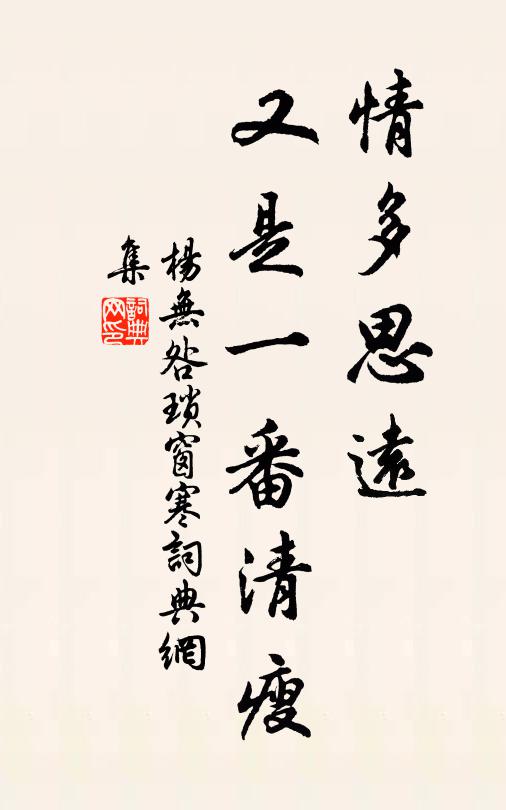 情多思遠
又是一番清瘦
楊無咎瑣窗寒詞典網
集
詞典网印